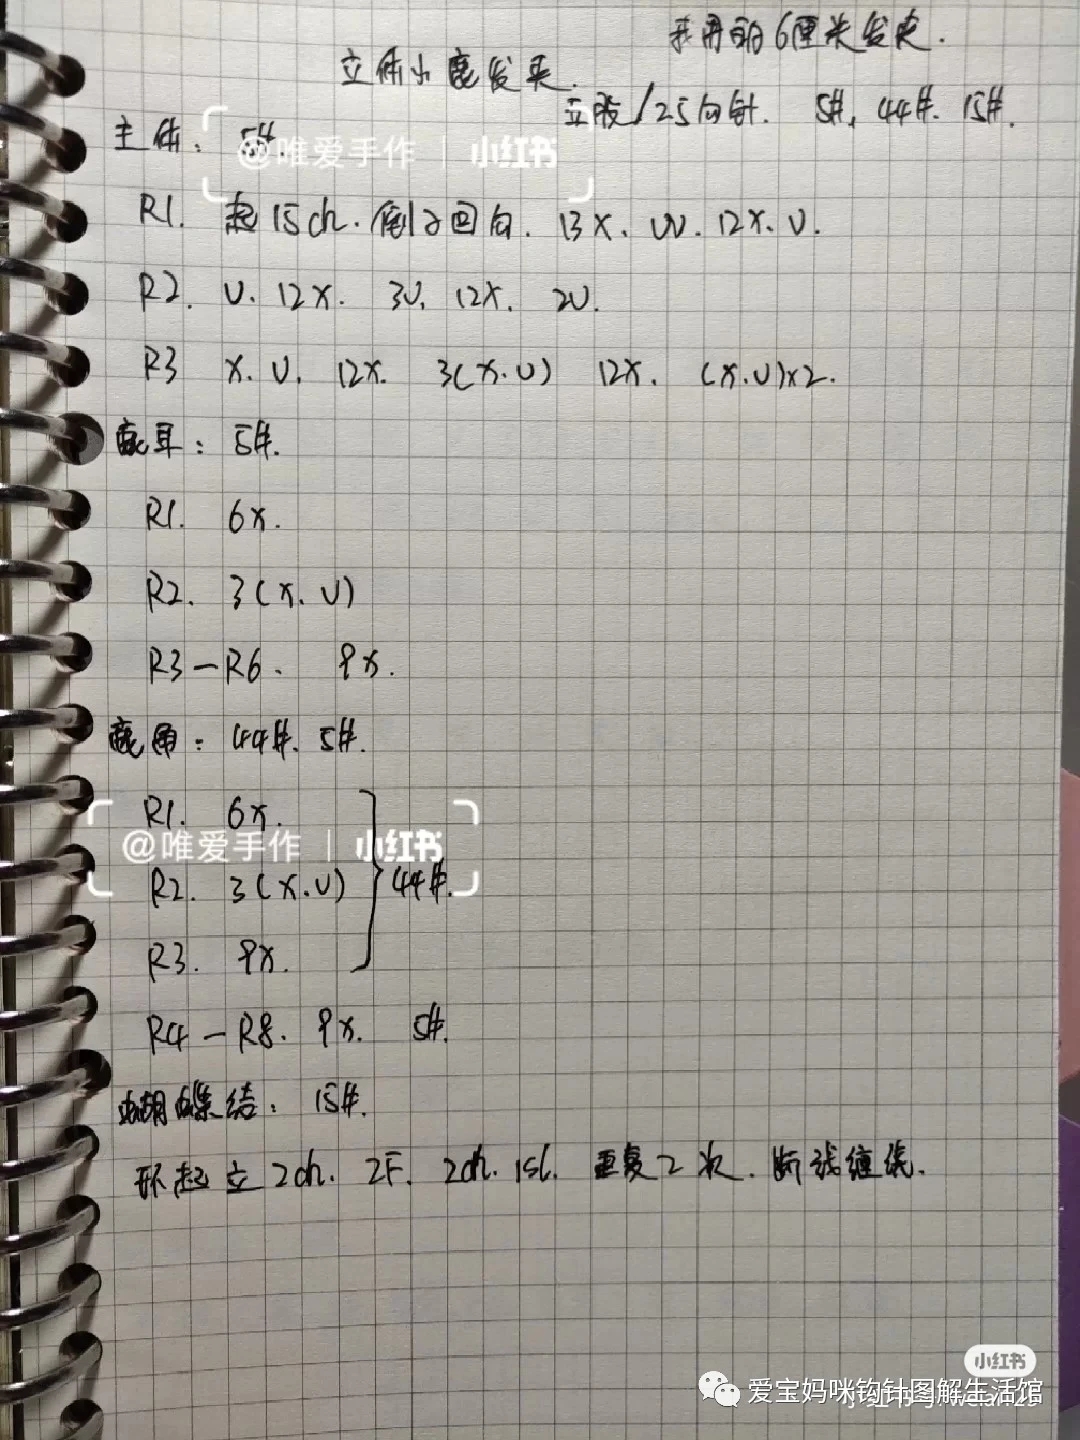 我用的6厘米发夹.
立体小鹿发夹.
五股/2.5钩针. 5#, 44#. 15#.
主体: 5#.
@唯爱手作 | 小红书
R1. 起15ch. 倒2回钩. 13X. W. 12X. V.
R2. V. 12X. 3V. 12X. 2V.
R3 X. V. 12X. 3(X.V) 12X. (X.V)x2.
鹿耳: 5#.
R1. 6X.
R2. 3(X.V)
R3—R6. 9X.
鹿角: 44#. 5#.
R1. 6X.
@唯爱手作 | 小红书
R2. 3(X.V) 44#.
R3. 9X.
R4—R8. 9X. 5#.
蝴蝶结: 15#.
环起立2ch. 2F. 2ch. 1sl. 重复2次. 断线缠绕.
小红书
爱宝妈咪钩针图解生活馆